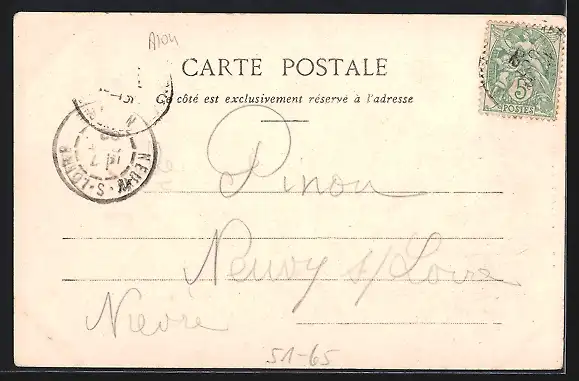 CARTE POSTALE
Ce côté est exclusivement réservé à l'adresse
5
POSTES
NEUVY-S-LOIRE
Pinon
Neuvy s/Loire
Nièvre
51-65